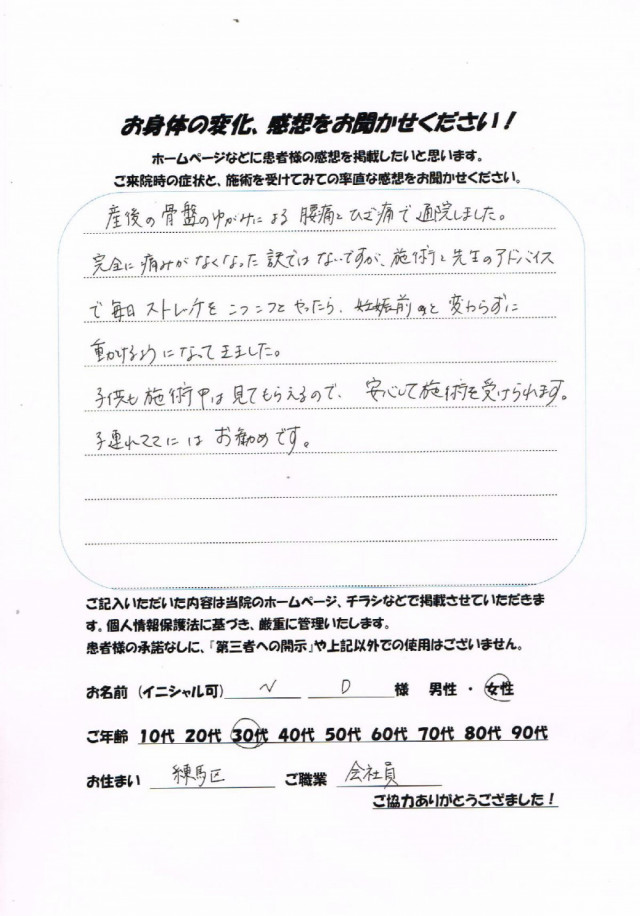 お身体の変化、感想をお聞かせください！
ホームページなどに患者様の感想を掲載したいと思います。
ご来院時の症状と、施術を受けてみての率直な感想をお聞かせください。
産後の骨盤のゆがみによる腰痛とひざ痛で通院しました。
完全に痛みがなくなった訳ではないですが、施術と先生のアドバイス
で毎日ストレッチをコツコツとやったら、妊娠前と変わらずに
動けるようになってきました。
子供も施術中は見てもらえるので、安心して施術を受けられます。
子連れママにはお勧めです。
ご記入いただいた内容は当院のホームページ、チラシなどで掲載させていただきま
す。個人情報保護法に基づき、厳重に管理いたします。
患者様の承諾なしに、「第三者への開示」や上記以外での使用はございません。
お名前（イニシャル可） N D 様 男性・女性
ご年齢 10代 20代 30代 40代 50代 60代 70代 80代 90代
お住まい 練馬区 ご職業 会社員
ご協力ありがとうござました！